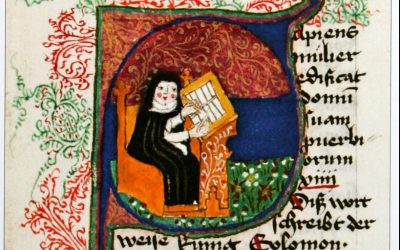 Sapiens
mulier
edificat
domū
suam
puerbi
orum
xiiij
Diß wort
schreibt der
weise Kunig Solomon